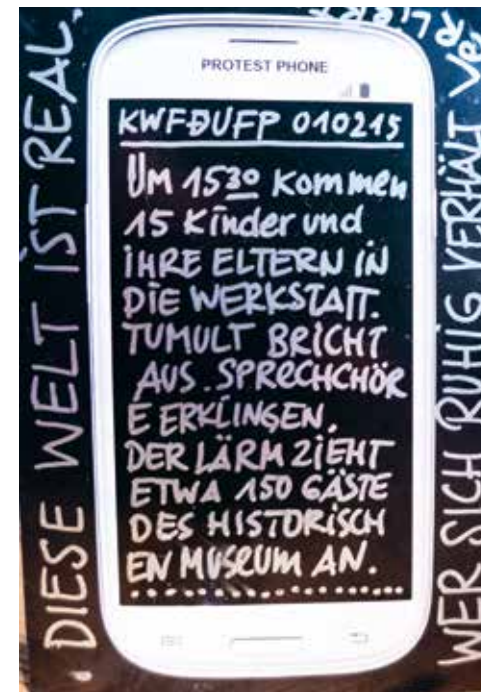 PROTEST PHONE
KWFDUFP 010215
UM 1530 Kommen
15 Kinder und
IHRE ELTERN IN
DIE WERKSTATT.
TUMULT BRICHT
AUS. SPRECHCHÖR
E ERKLINGEN.
DER LÄRM ZIEHT
ETWA 150 GÄSTE
DES HISTORISCH
EN MUSEUM AN.
.DIESE WELT IST REAL.
WER SICH RUHIG VERHÄLT
VERLIERT